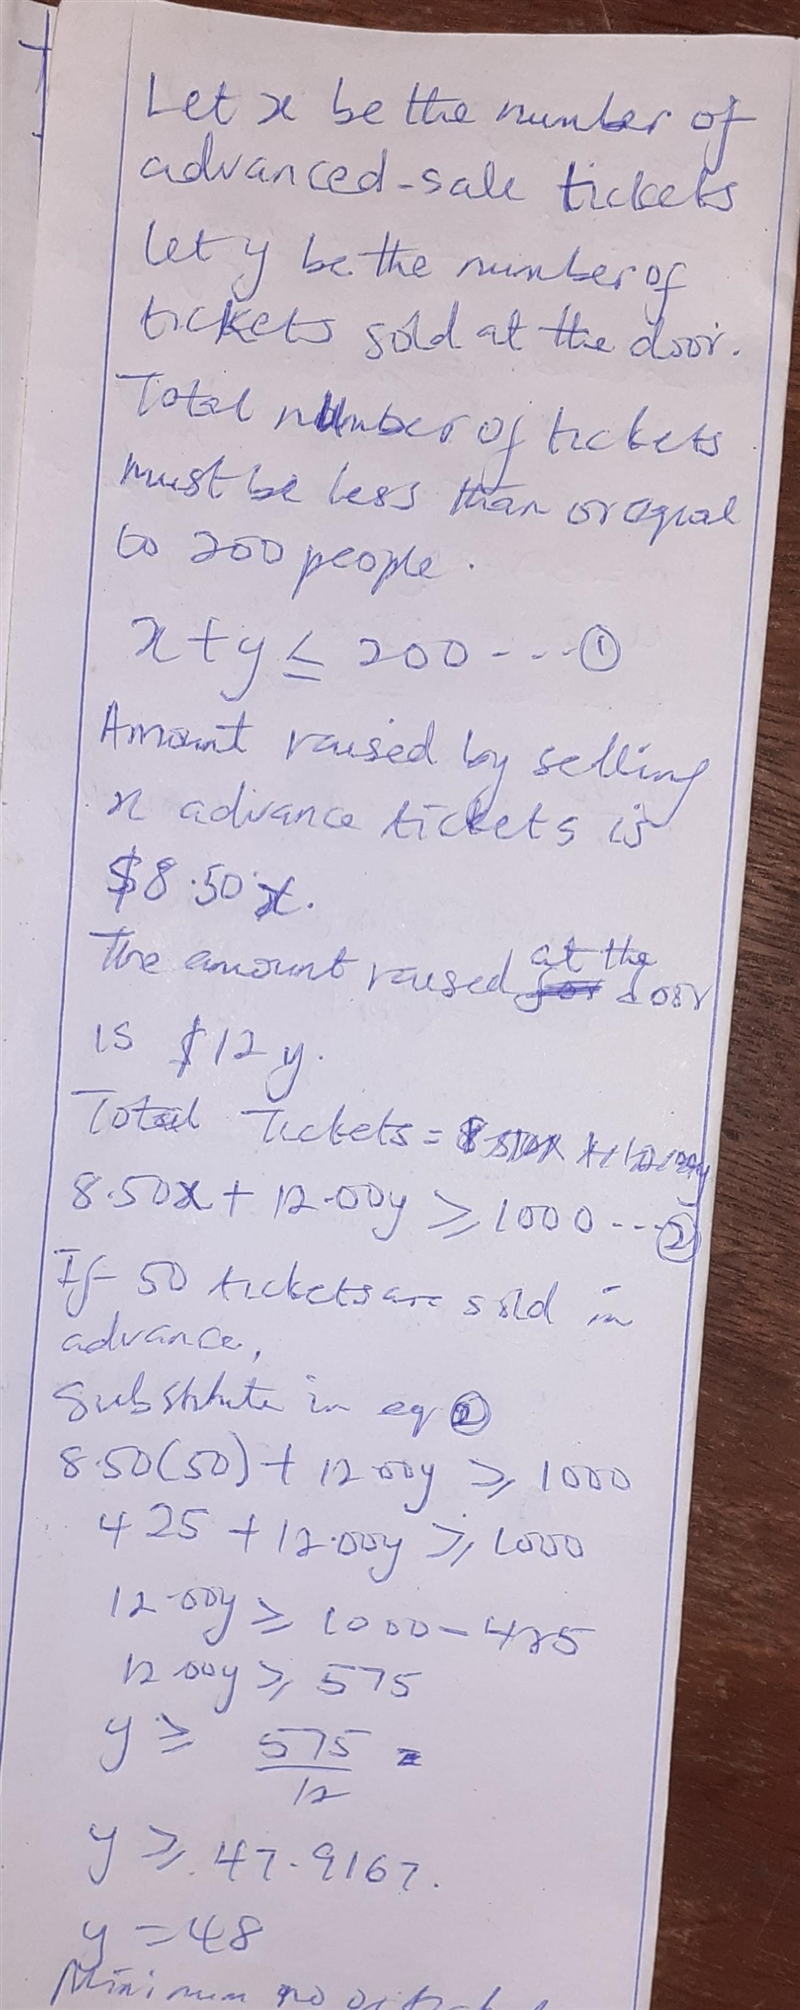 Let x be the number of
advanced-sale tickets
let y be the number of
tickets sold at the door.
Total number of tickets
must be less than or equal
to 200 people.
x + y ≤ 200 --- ①
Amount raised by selling
x advance tickets is
$8.50x.
The amount raised at the door
is $12y.
Total Tickets =
8.50x + 12.00y ≥ 1000 --- ②
If 50 tickets are sold in
advance,
Substitute in eq ②
8.50(50) + 12.00y ≥ 1000
425 + 12.00y ≥ 1000
12.00y ≥ 1000 - 425
12.00y ≥ 575
y ≥ 575/12 =
y ≥ 47.9167.
y = 48
Minimum no of